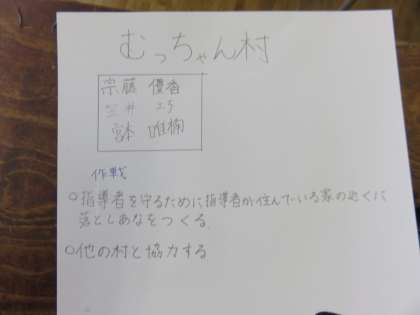 むっちゃん村
宗藤 優香
笠井
宮本 唯楠
作戦
○指導者を守るために指導者が住んでいる家の近くに
落としあなをつくる
○他の村と協力する